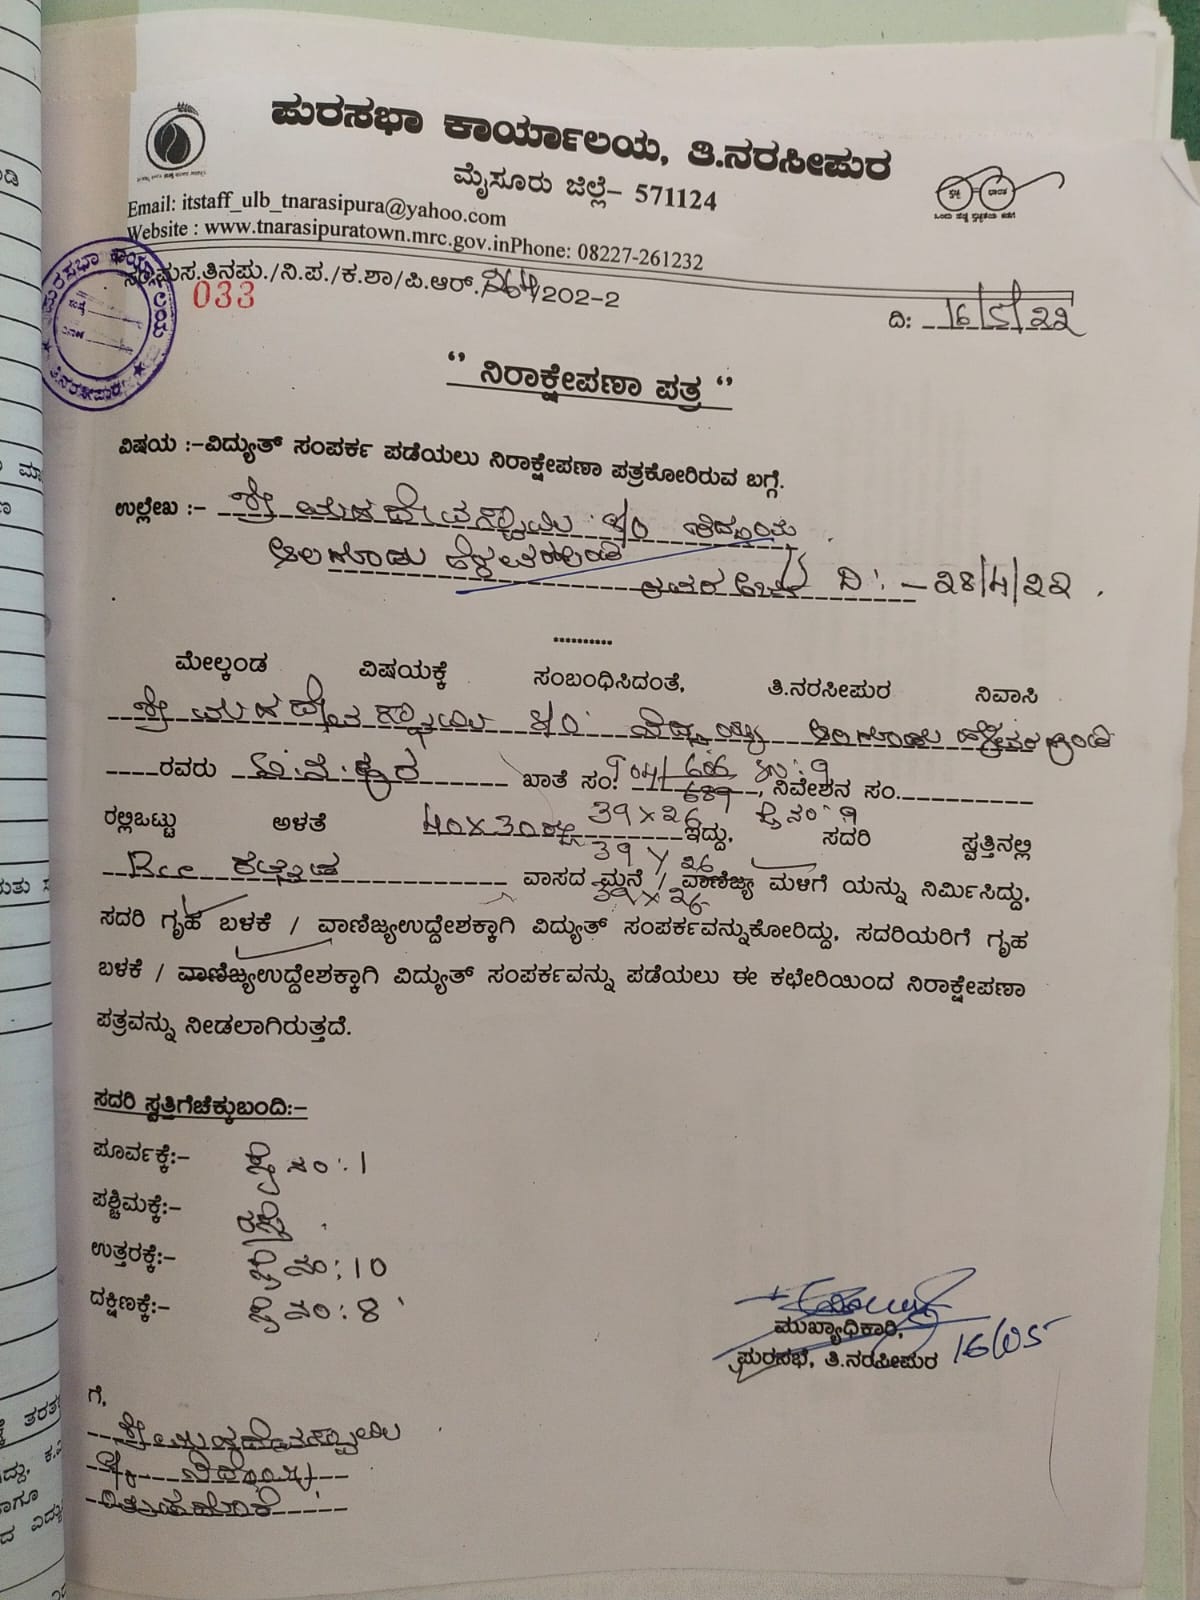 ಪುರಸಭಾ ಕಾರ್ಯಾಲಯ, ತಿ.ನರಸೀಪುರ
ಮೈಸೂರು ಜಿಲ್ಲೆ– 571124
Email: itstaff_ulb_tnarasipura@yahoo.com
Website : www.tnarasipuratown.mrc.gov.inPhone: 08227-261232
ಪುರಸಭಾ ಕಾರ್ಯಾಲಯ ★ ತಿ.ನರಸೀಪುರ ★
ಸಂ.ಪುಸ.ತಿನಪು./ನಿ.ಪ./ಕ.ಶಾ/ಪಿ.ಆರ್. /202-2
033
ದಿ: 16/5/22
‘‘ ನಿರಾಕ್ಷೇಪಣಾ ಪತ್ರ ‘‘
ವಿಷಯ :–ವಿದ್ಯುತ್ ಸಂಪರ್ಕ ಪಡೆಯಲು ನಿರಾಕ್ಷೇಪಣಾ ಪತ್ರಕೋರಿರುವ ಬಗ್ಗೆ.
ಉಲ್ಲೇಖ :– ಶ್ರೀ ಮಹದೇವಸ್ವಾಮಿ S/O
ಆಲಗೂಡು
ಅವರ ಅರ್ಜಿ ದಿ: – 28/4/22 .
..........
ಮೇಲ್ಕಂಡ ವಿಷಯಕ್ಕೆ ಸಂಬಂಧಿಸಿದಂತೆ, ತಿ.ನರಸೀಪುರ ನಿವಾಸಿ
ಶ್ರೀ ಮಹದೇವಸ್ವಾಮಿ S/O ಆಲಗೂಡು
ರವರು ಖಾತೆ ಸಂ: , ನಿವೇಶನ ಸಂ.
ರಲ್ಲಿಒಟ್ಟು ಅಳತೆ 40X30 39X26 ಇದ್ದು, ಸದರಿ ಸ್ವತ್ತಿನಲ್ಲಿ
Rcc ಕಟ್ಟಡ 39 X 26 ವಾಸದ ಮನೆ / ವಾಣಿಜ್ಯ ಮಳಿಗೆ ಯನ್ನು ನಿರ್ಮಿಸಿದ್ದು,
39X26
ಸದರಿ ಗೃಹ ಬಳಕೆ / ವಾಣಿಜ್ಯಉದ್ದೇಶಕ್ಕಾಗಿ ವಿದ್ಯುತ್ ಸಂಪರ್ಕವನ್ನುಕೋರಿದ್ದು, ಸದರಿಯರಿಗೆ ಗೃಹ
ಬಳಕೆ / ವಾಣಿಜ್ಯಉದ್ದೇಶಕ್ಕಾಗಿ ವಿದ್ಯುತ್ ಸಂಪರ್ಕವನ್ನು ಪಡೆಯಲು ಈ ಕಛೇರಿಯಿಂದ ನಿರಾಕ್ಷೇಪಣಾ
ಪತ್ರವನ್ನು ನೀಡಲಾಗಿರುತ್ತದೆ.
ಸದರಿ ಸ್ವತ್ತಿಗೆಚೆಕ್ಕುಬಂದಿ:–
ಪೂರ್ವಕ್ಕೆ:– ಸೈ ನಂ: 1
ಪಶ್ಚಿಮಕ್ಕೆ:– ರಸ್ತೆ .
ಉತ್ತರಕ್ಕೆ:– ಸೈ ನಂ: 10
ದಕ್ಷಿಣಕ್ಕೆ:– ಸೈ ನಂ: 8
ಮುಖ್ಯಾಧಿಕಾರಿ,
ಪುರಸಭೆ, ತಿ.ನರಸೀಪುರ 16/05
ಗೆ,
ಶ್ರೀ ಮಹದೇವಸ್ವಾಮಿ